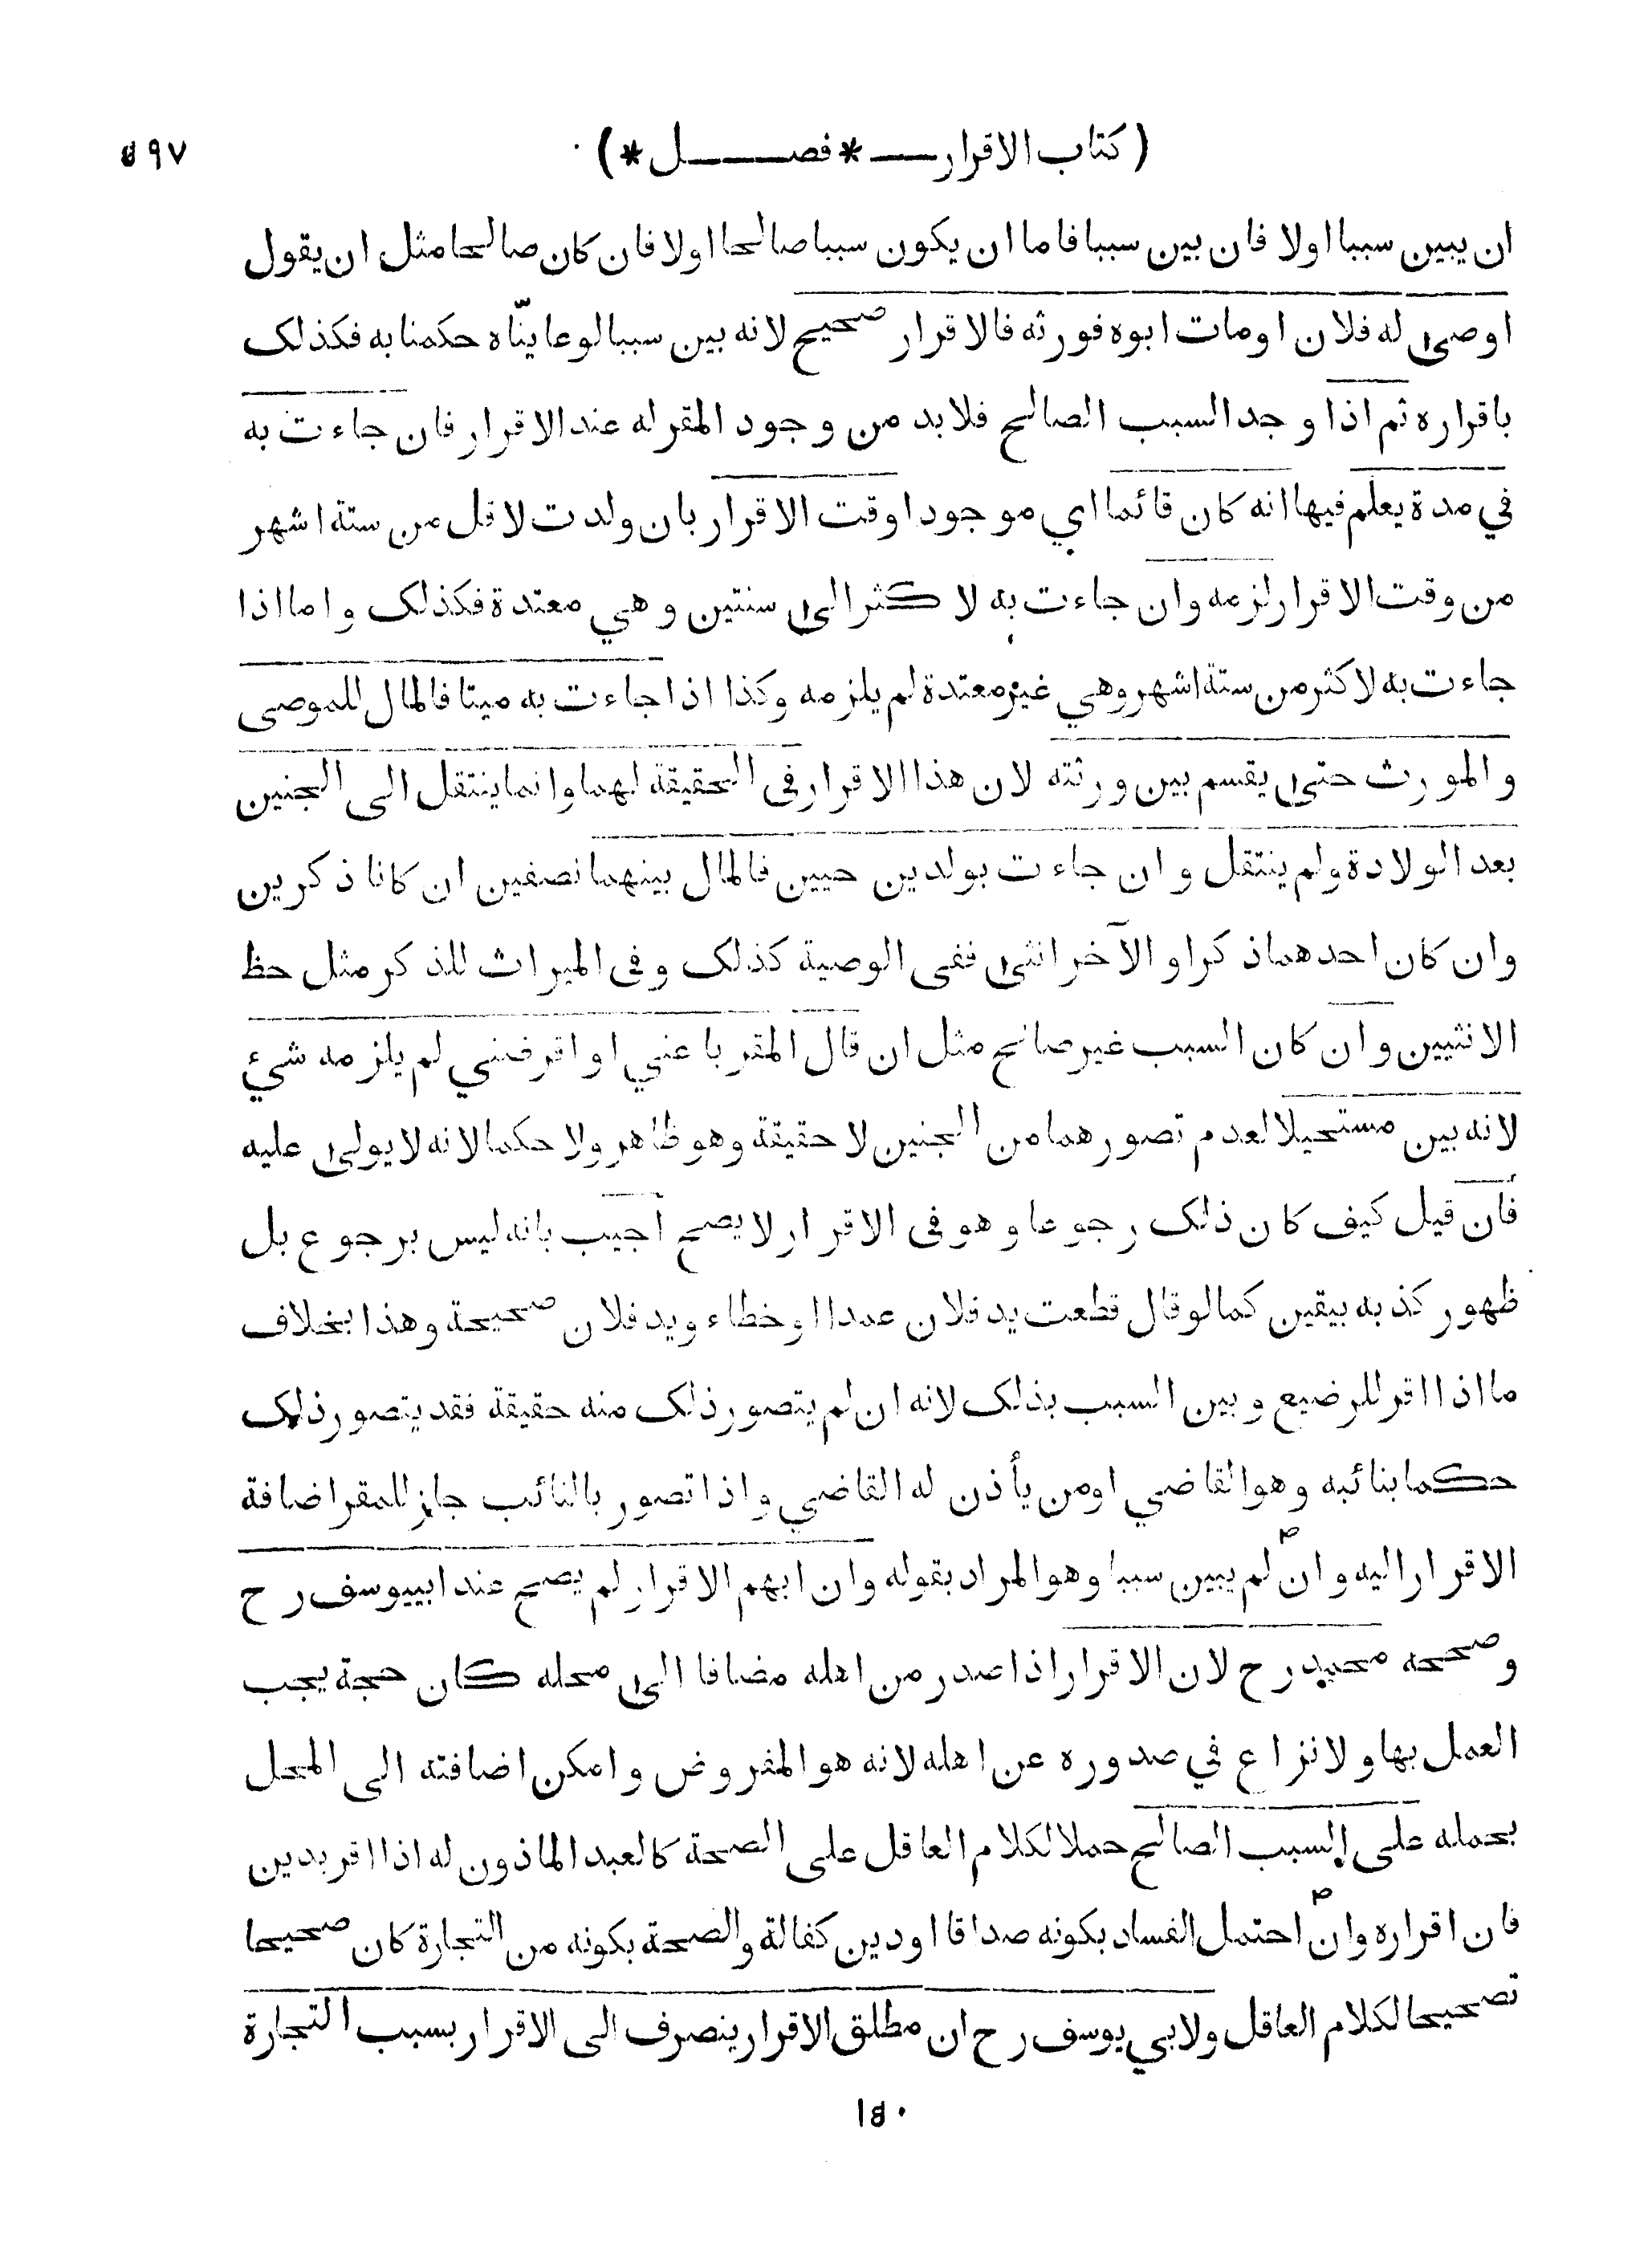 (كتاب الاقرار — * فصـــل *)
٥٩٧
ان يبين سببا اولا فان بين سببا فاما ان يكون سببا صالحا اولا فان كان صالحا مثل ان يقول
اوصى له فلان او مات ابوه فورثه فالاقرار صحيح لانه بين سببا لو عاينّاه حكمنا به فكذلك
باقراره ثم اذا وجد السبب الصالح فلابد من وجود المقرله عند الاقرار فان جاءت به
في مدة يعلم فيها انه كان قائما اي موجودا وقت الاقرار بان ولدت لاقل من ستة اشهر
من وقت الاقرار لزمه وان جاءت به لاكثر الى سنتين وهي معتدة فكذلك واما اذا
جاءت به لاكثر من ستة اشهر وهي غير معتدة لم يلزمه وكذا اذا جاءت به ميتا فالمال للموصى
والمورث حتى يقسم بين ورثته لان هذا الاقرار فى الحقيقة لهما وانما ينتقل الى الجنين
بعد الولادة ولم ينتقل وان جاءت بولدين حيين فالمال بينهما نصفين ان كانا ذكرين
وان كان احدهما ذكرا والآخر انثى ففى الوصية كذلك وفى الميراث للذكر مثل حظ
الانثيين وان كان السبب غير صالح مثل ان قال المقر باعني او اقرضني لم يلزمه شيء
لانه بين مستحيلا لعدم تصورهما من الجنين لا حقيقة وهو ظاهر ولا حكما لانه لا يولى عليه
فان قيل كيف كان ذلك رجوعا وهو فى الاقرار لا يصح اجيب بانه ليس برجوع بل
ظهور كذبه بيقين كما لو قال قطعت يد فلان عمدا او خطاء ويد فلان صحيحة وهذا بخلاف
ما اذا اقر للرضيع وبين السبب بذلك لانه ان لم يتصور ذلك منه حقيقة فقد يتصور ذلك
حكما بنائبه وهو القاضي او من يأذن له القاضي واذا تصور بالنائب جاز للمقر اضافة
الاقرار اليه وان لم يبين سببا وهو المراد بقوله وان ابهم الاقرار لم يصح عند ابييوسف رح
وصححه محمد رح لان الاقرار اذا صدر من اهله مضافا الى محله كان حجة يجب
العمل بها ولا نزاع في صدوره عن اهله لانه هو المفروض وامكن اضافته الى المحل
بحمله على السبب الصالح حملا لكلام العاقل على الصحة كالعبد الماذون له اذا اقر بدين
فان اقراره وان احتمل الفساد بكونه صداقا او دين كفالة والصحة بكونه من التجارة كان صحيحا
تصحيحا لكلام العاقل ولابي يوسف رح ان مطلق الاقرار ينصرف الى الاقرار بسبب التجارة
١٥٠